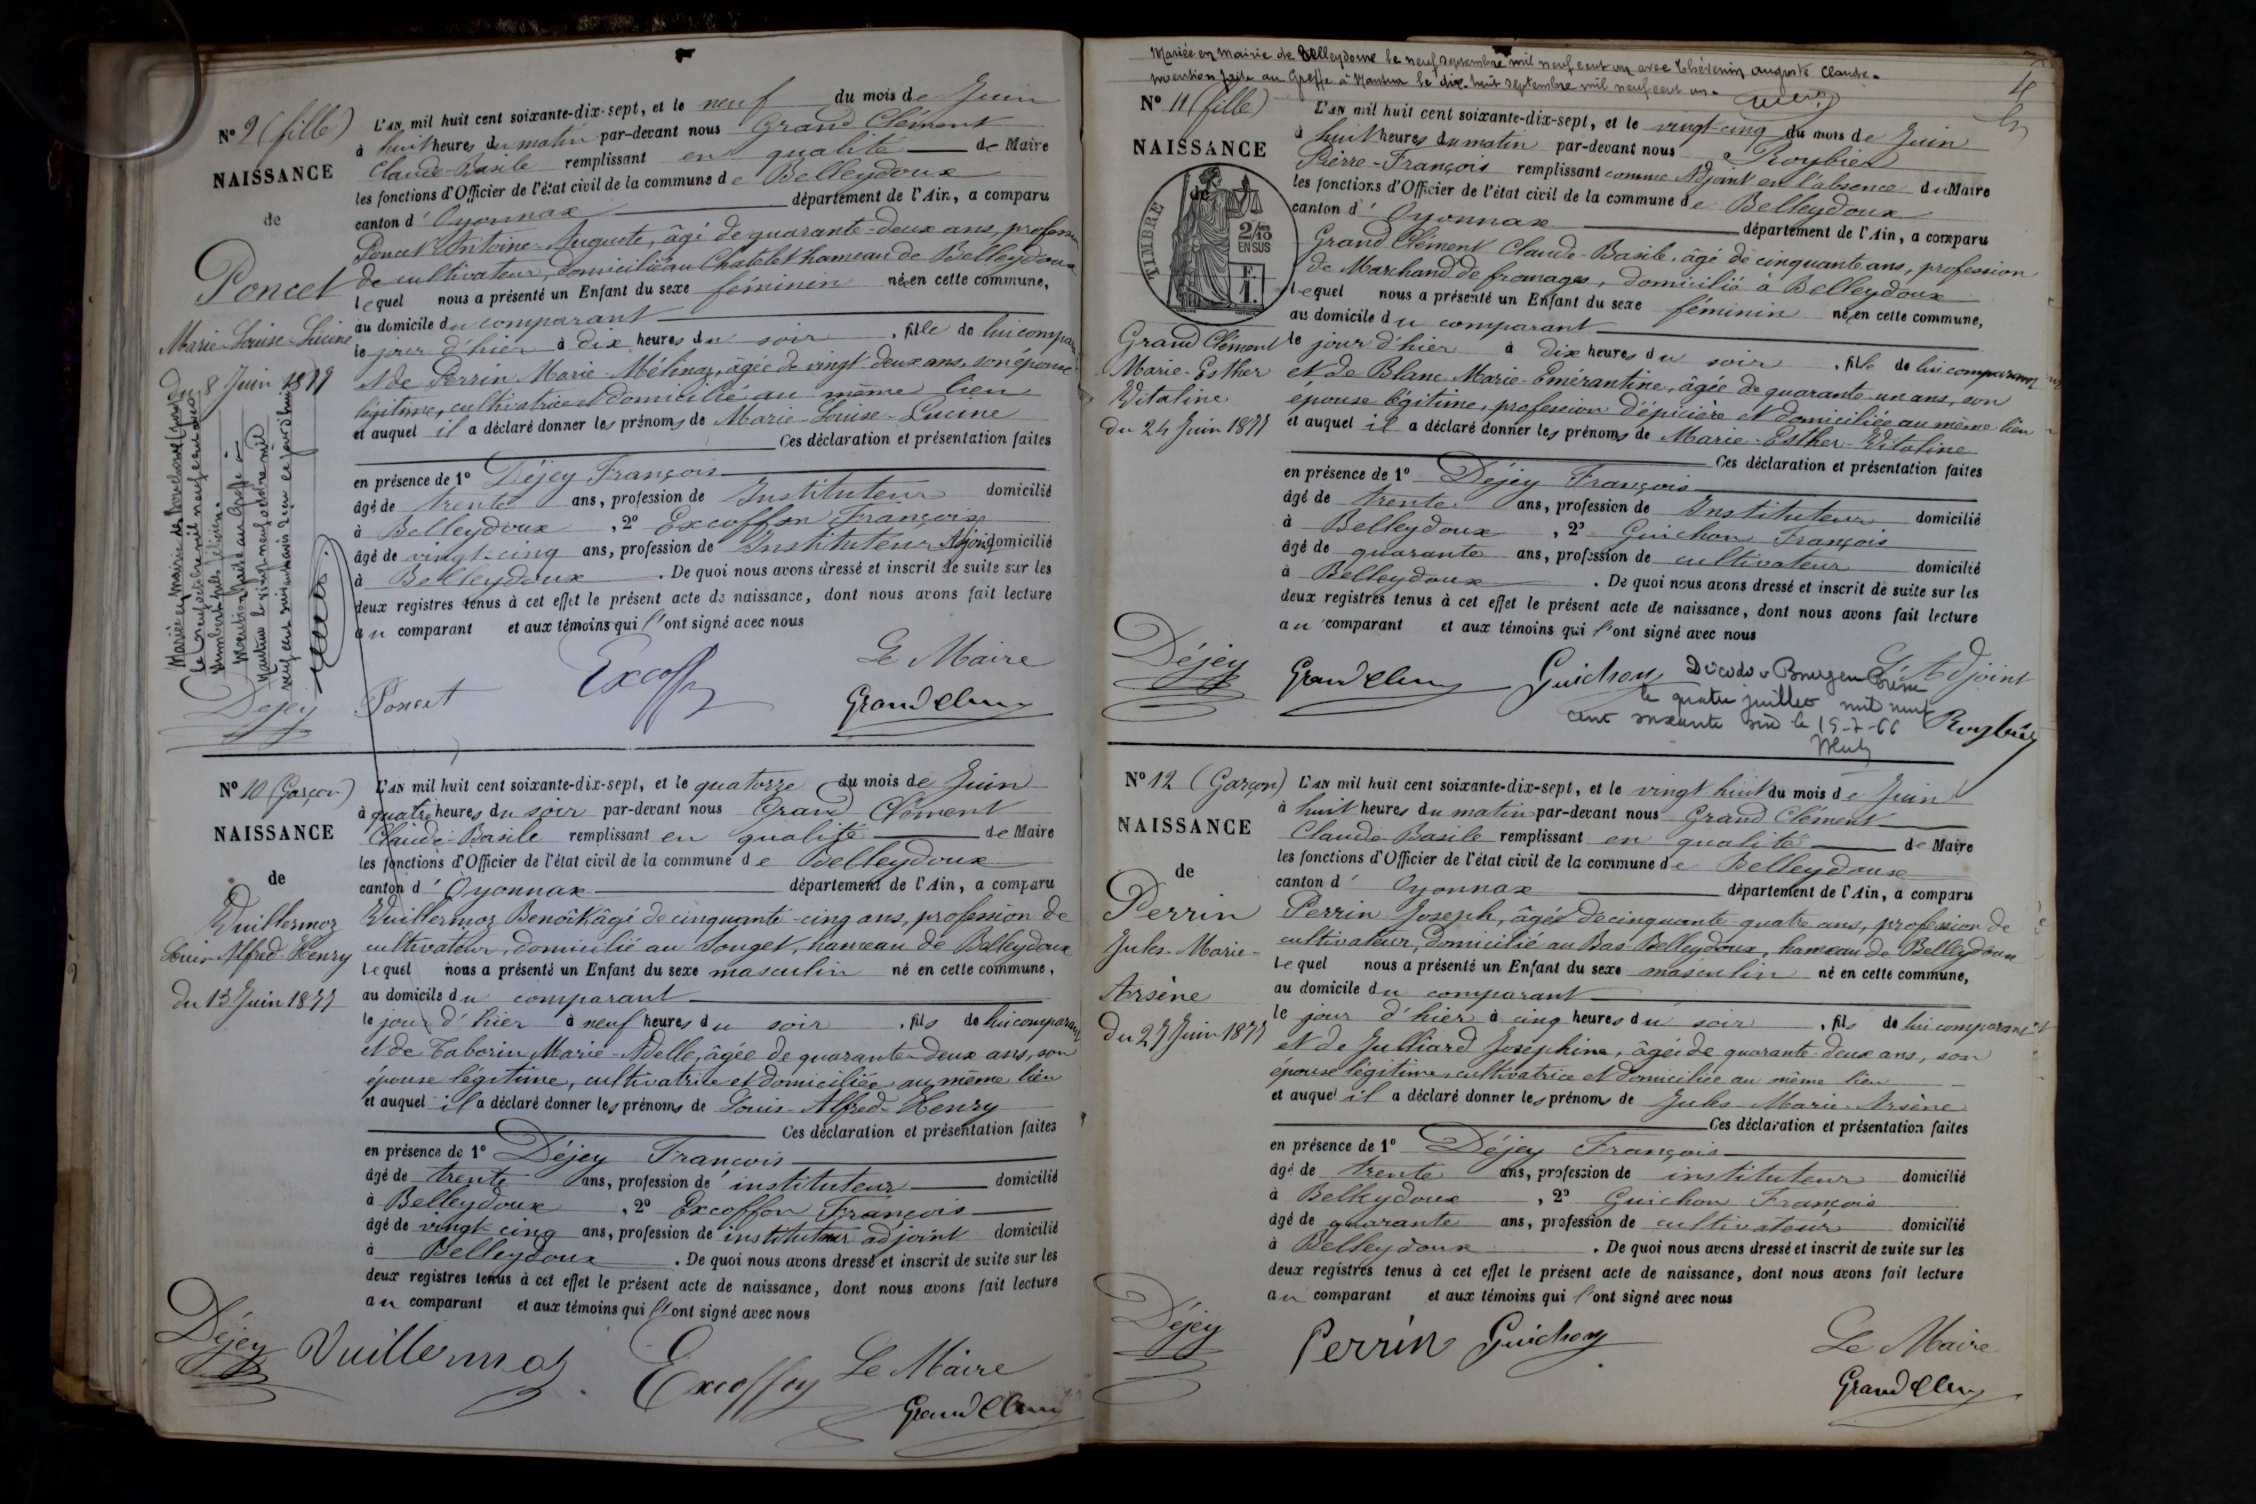 N° 9 (fille)
NAISSANCE
de
Poncet
Marie-Louise-Lucine
Du 8 Juin 1877
Mariée en mairie de
le neuf octobre mil neuf cent
Mention faite au Greffe à
Nantua le vingt-neuf octobre mil
L'AN mil huit cent soixante-dix-sept, et le neuf du mois de Juin
à huit heures du matin par-devant nous Grand Clément
Claude-Basile remplissant en qualité de Maire
les fonctions d'Officier de l'état civil de la commune de Belleydoux
canton d'Oyonnax département de l'Ain, a comparu
Poncet Antoine-Auguste, âgé de quarante-deux ans, profession
de cultivateur, domicilié au Chatelet hameau de Belleydoux
lequel nous a présenté un Enfant du sexe féminin née en cette commune,
au domicile du comparant
le jour d'hier à dix heures du soir, fille de lui comparant
et de Perrin Marie-Mélina, âgée de vingt-deux ans, son épouse
légitime, cultivatrice et domiciliée au même lieu
et auquel il a déclaré donner les prénoms de Marie-Louise-Lucine
Ces déclaration et présentation faites
en présence de 1° Déjey François
âgé de trente ans, profession de Instituteur domicilié
à Belleydoux, 2° Excoffon François
âgé de vingt-cinq ans, profession de Instituteur Adjoint domicilié
à Belleydoux. De quoi nous avons dressé et inscrit de suite sur les
deux registres tenus à cet effet le présent acte de naissance, dont nous avons fait lecture
au comparant et aux témoins qui l'ont signé avec nous
Le Maire
Déjey Poncet Excoffon Grand Clém
N° 10 (Garçon)
NAISSANCE
de
Vuillermoz
Louis-Alfred-Henry
Du 13 Juin 1877
L'AN mil huit cent soixante-dix-sept, et le quatorze du mois de Juin
à quatre heures du soir par-devant nous Grand Clément
Claude-Basile remplissant en qualité de Maire
les fonctions d'Officier de l'état civil de la commune de Belleydoux
canton d'Oyonnax département de l'Ain, a comparu
Vuillermoz Benoît âgé de cinquante-cinq ans, profession de
cultivateur, domicilié au Souget, hameau de Belleydoux
lequel nous a présenté un Enfant du sexe masculin né en cette commune,
au domicile du comparant
le jour d'hier à neuf heures du soir, fils de lui comparant
et de Taborin Marie-Adelle, âgée de quarante-deux ans, son
épouse légitime, cultivatrice et domiciliée au même lieu
et auquel il a déclaré donner les prénoms de Louis-Alfred-Henry
Ces déclaration et présentation faites
en présence de 1° Déjey François
âgé de trente ans, profession de instituteur domicilié
à Belleydoux, 2° Excoffon François
âgé de vingt-cinq ans, profession de instituteur adjoint domicilié
à Belleydoux. De quoi nous avons dressé et inscrit de suite sur les
deux registres tenus à cet effet le présent acte de naissance, dont nous avons fait lecture
au comparant et aux témoins qui l'ont signé avec nous
Déjey Vuillermoz Excoffon Le Maire
Grand Clém
Mariée en Mairie de Belleydoux le neuf septembre mil neuf cent un avec Thévenin auguste Claude.
Mention faite au Greffe à Nantua le dix-huit septembre mil neuf cent un.
4
N° 11 (fille)
NAISSANCE
de
TIMBRE
2/10
EN SUS
Grand Clément
Marie-Esther
Vitaline
du 24 Juin 1877
L'AN mil huit cent soixante-dix-sept, et le vingt-cinq du mois de Juin
à huit heures du matin par-devant nous Roybier
Pierre-François remplissant comme Adjoint en l'absence du Maire
les fonctions d'Officier de l'état civil de la commune de Belleydoux
canton d'Oyonnax département de l'Ain, a comparu
Grand Clément Claude-Basile, âgé de cinquante ans, profession
de Marchand de fromages, domicilié à Belleydoux
lequel nous a présenté un Enfant du sexe féminin née en cette commune,
au domicile du comparant
le jour d'hier à dix heures du soir, fille de lui comparant
et de Blanc Marie-Emérantine, âgée de quarante-un ans, son
épouse légitime, profession d'épicière et domiciliée au même lieu
et auquel il a déclaré donner les prénoms de Marie-Esther-Vitaline
Ces déclaration et présentation faites
en présence de 1° Déjey François
âgé de trente ans, profession de Instituteur domicilié
à Belleydoux, 2° Guichon François
âgé de quarante ans, profession de cultivateur domicilié
à Belleydoux. De quoi nous avons dressé et inscrit de suite sur les
deux registres tenus à cet effet le présent acte de naissance, dont nous avons fait lecture
au comparant et aux témoins qui l'ont signé avec nous
Déjey Grand Clém Guichon L'Adjoint
Décédée Bourg en Bresse
le quatre juillet mil neuf
cent soixante six le 15-7-66
Roybier
N° 12 (Garçon)
NAISSANCE
de
Perrin
Jules-Marie-
Arsène
Du 27 Juin 1877
L'AN mil huit cent soixante-dix-sept, et le vingt huit du mois de Juin
à huit heures du matin par-devant nous Grand Clément
Claude-Basile remplissant en qualité de Maire
les fonctions d'Officier de l'état civil de la commune de Belleydoux
canton d'Oyonnax département de l'Ain, a comparu
Perrin Joseph, âgé de cinquante-quatre ans, profession de
cultivateur, domicilié au Bas-Belleydoux, hameau de Belleydoux
lequel nous a présenté un Enfant du sexe masculin né en cette commune,
au domicile du comparant
le jour d'hier à cinq heures du soir, fils de lui comparant
et de Julliard Joséphine, âgée de quarante-deux ans, son
épouse légitime, cultivatrice et domiciliée au même lieu
et auquel il a déclaré donner les prénoms de Jules-Marie-Arsène
Ces déclaration et présentation faites
en présence de 1° Déjey François
âgé de trente ans, profession de instituteur domicilié
à Belleydoux, 2° Guichon François
âgé de quarante ans, profession de cultivateur domicilié
à Belleydoux. De quoi nous avons dressé et inscrit de suite sur les
deux registres tenus à cet effet le présent acte de naissance, dont nous avons fait lecture
au comparant et aux témoins qui l'ont signé avec nous
Déjey Perrin Guichon Le Maire
Grand Clém